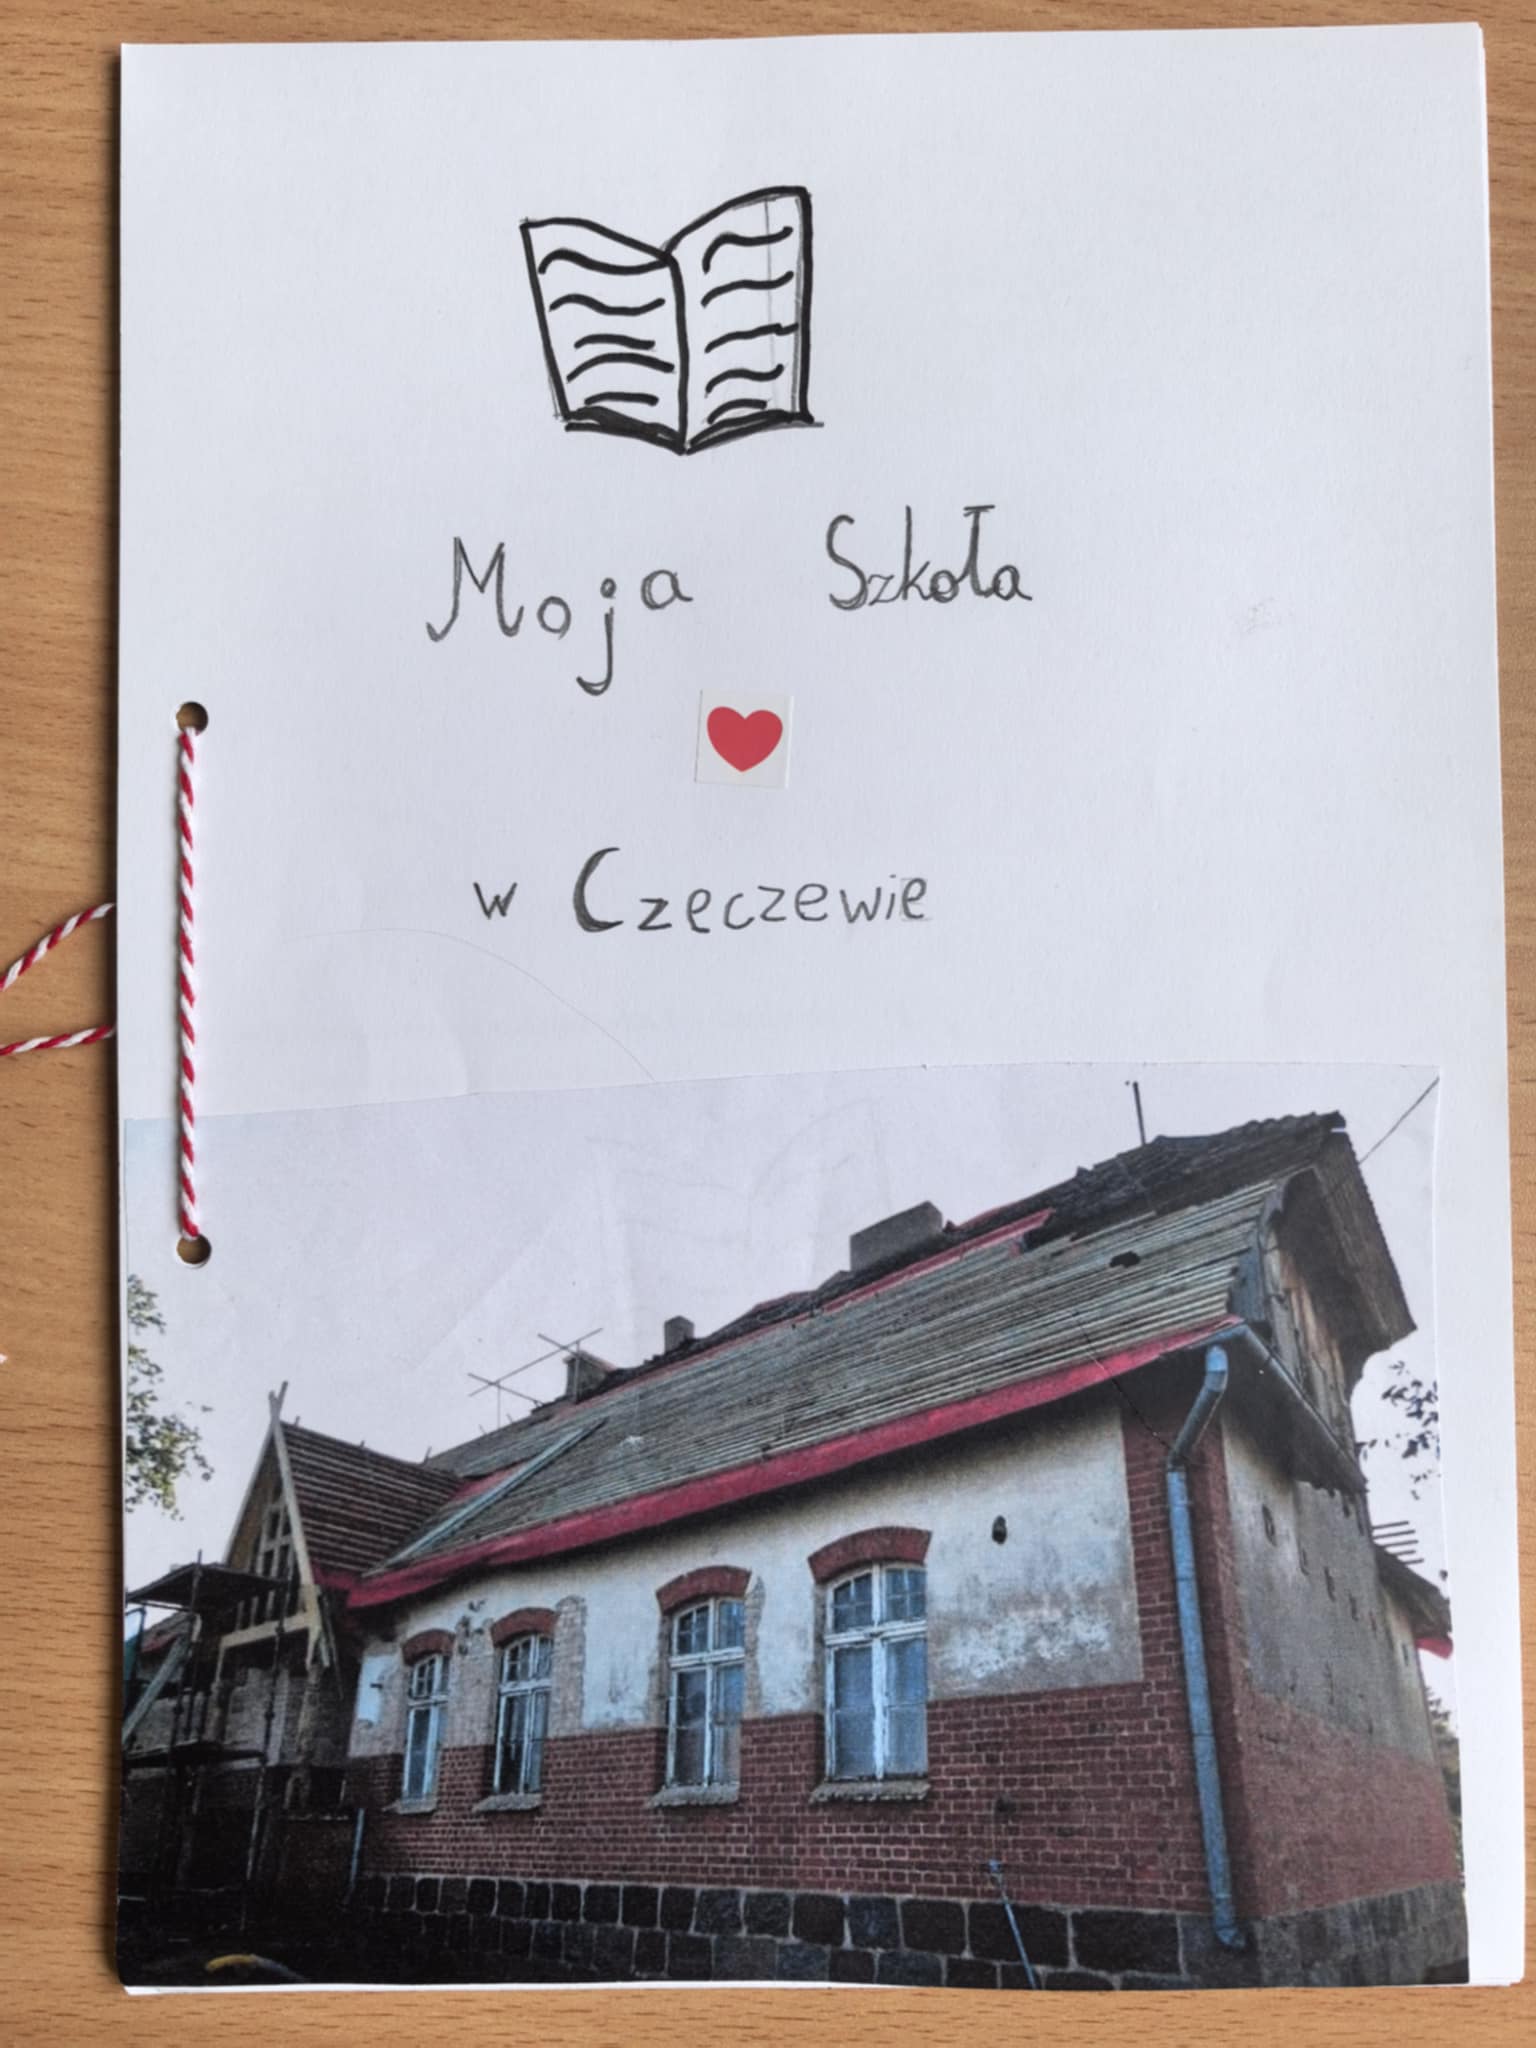 Moja Szkoła
w Czeczewie